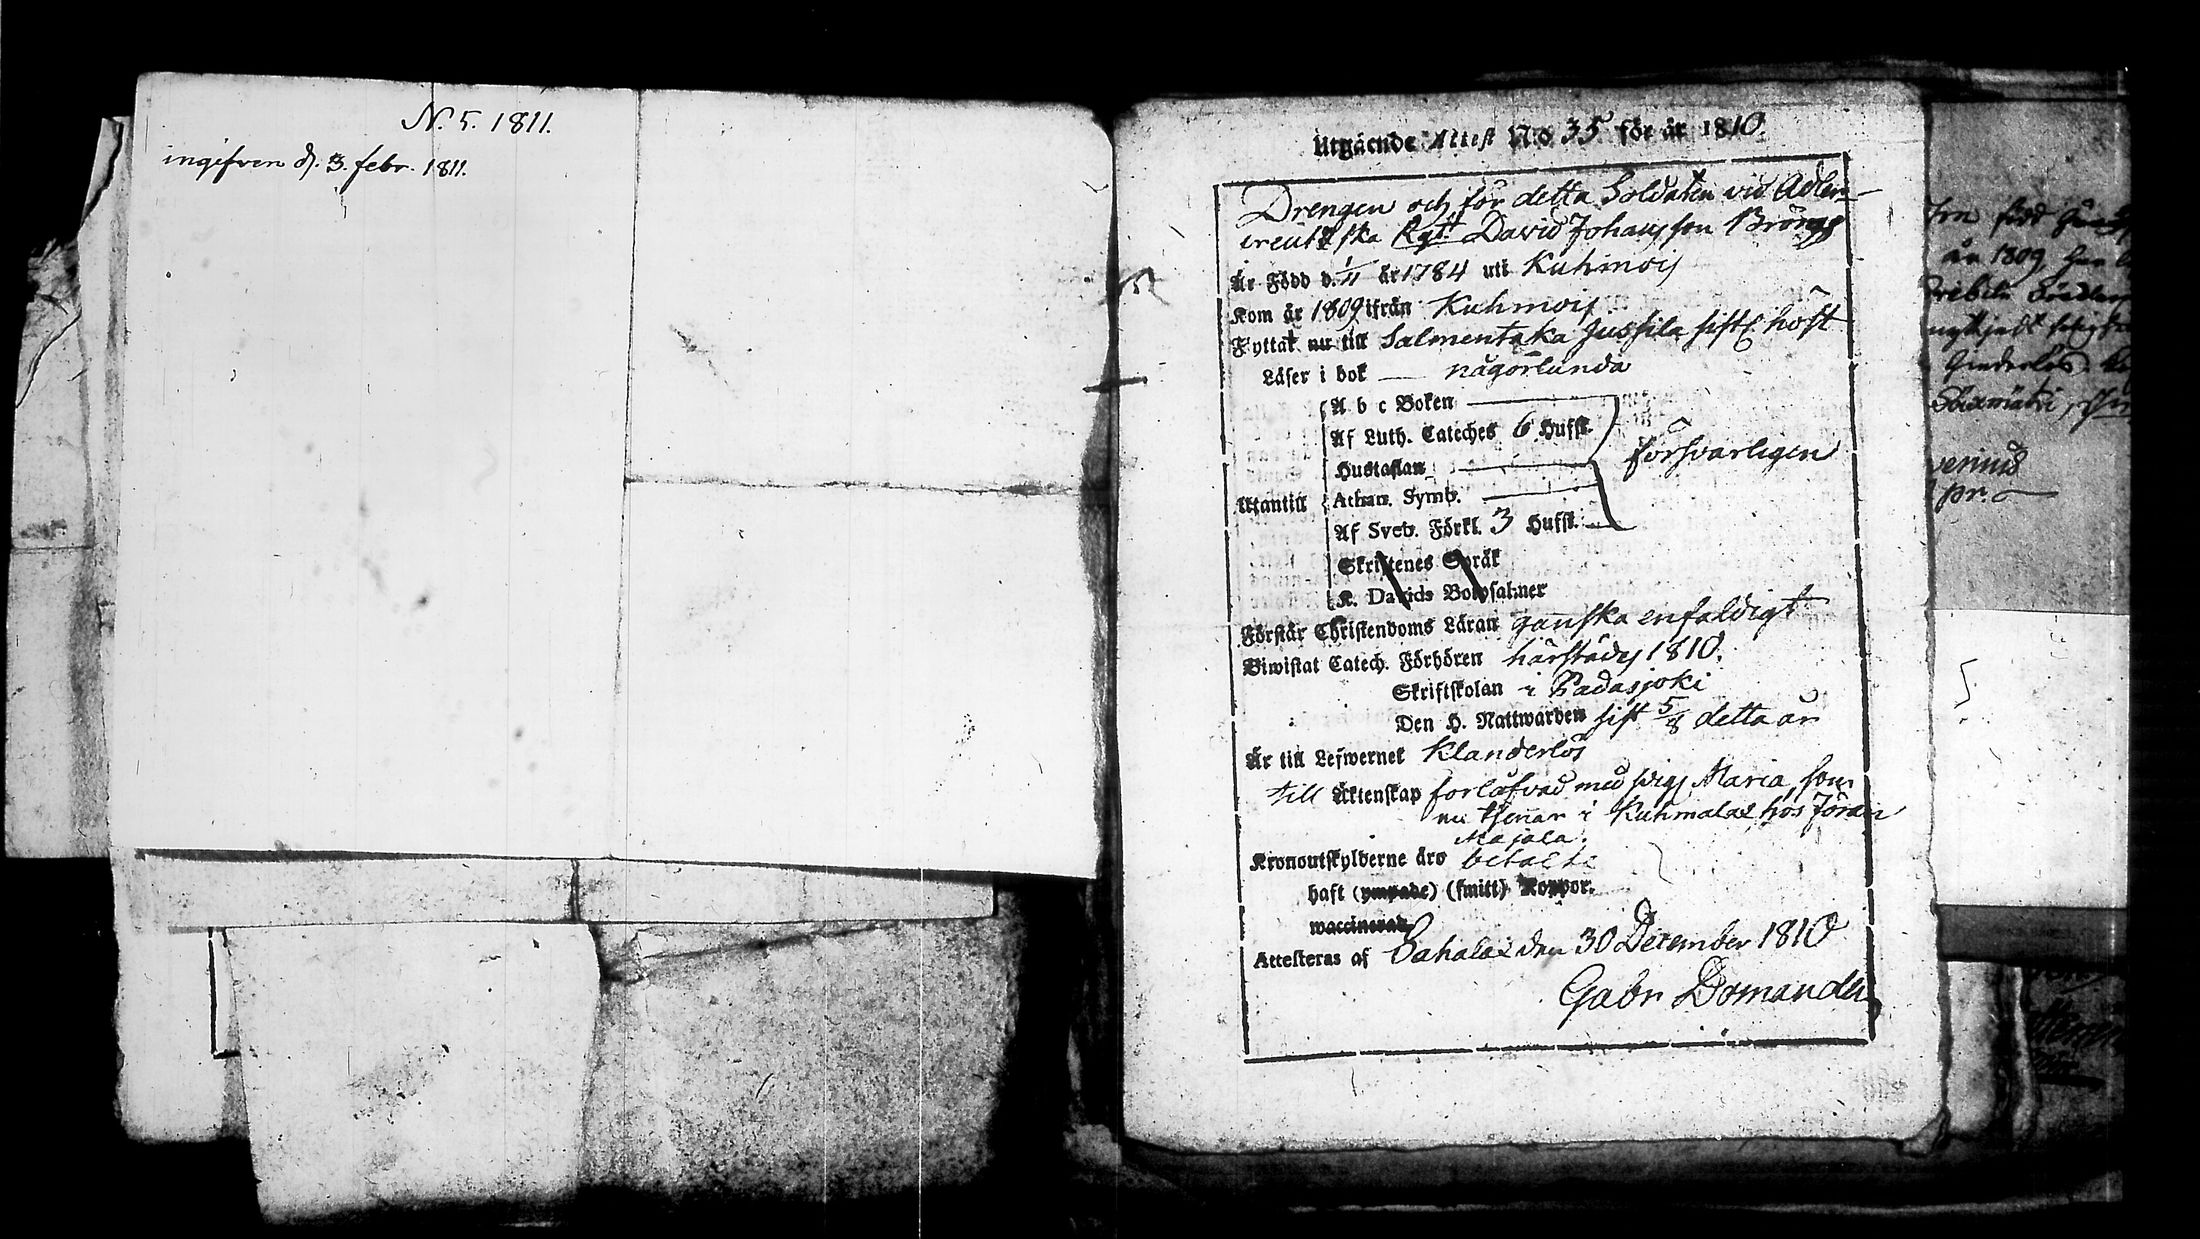 N. 5. 1811.
ingifven d. 3. febr. 1811.
Utgående Attest No 35 för år 1810.
Drengen och för detta Soldaten vid Adler-
creutzska Rgt. David Johansson
Är Född d. 1/11 år 1784 uti Kuhmois
Kom år 1809 ifrån Kuhmois
Flyttat nu till Salmentaka Jussila sistl. höst
Läser i bok — någorlunda
A b c Boken
Af Luth. Cateches 6 Hufst.
försvarligen
Hustaflan
Utantill
Athan. Symb.
Af Sveb. Förkl. 3 Hufst.
Skriftenes Språk
K. Davids Botpsalmer
Förstår Christendoms Läran ganska enfaldigt
Biwistat Catech. Förhören härstädes 1810.
Skriftskolan i Padasjoki
Den H. Nattwarden sist 5/8 detta år
Är till Lefwernet Klanderlös
till Äktenskap förlofvad med pigs Maria, som
nu tjenar i Kuhmalax hos Jöran
Majala.
Kronoutskylderne äro betalte
haft (ympade) (smitt) Koppor.
waccinerad
Attesteras af Sahalax den 30 December 1810
Gabr Domander
år 1809
pr.